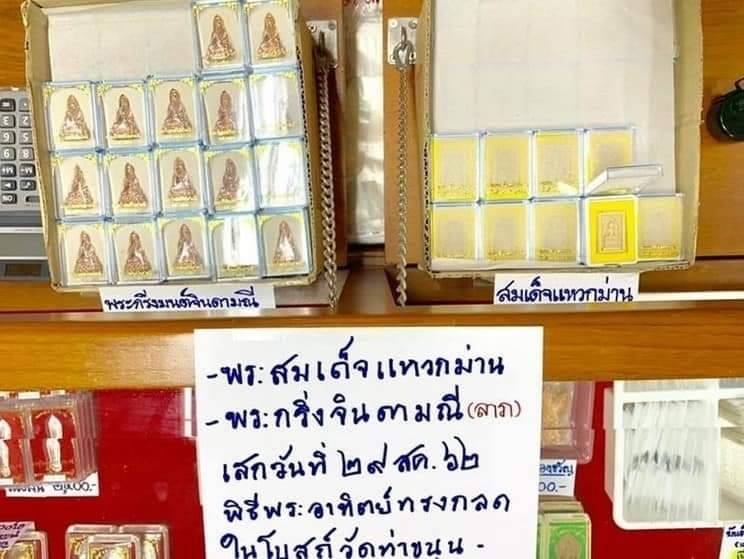 พระกริ่งมนต์จินดามณี
สมเด็จแหวกม่าน
- พระสมเด็จแหวกม่าน
- พระกริ่งจินดามณี (ลาภ)
เสกวันที่ ๒๙ สค. ๖๒
พิธีพระอาทิตย์ทรงกลด
ในโบสถ์วัดท่าขนุน -